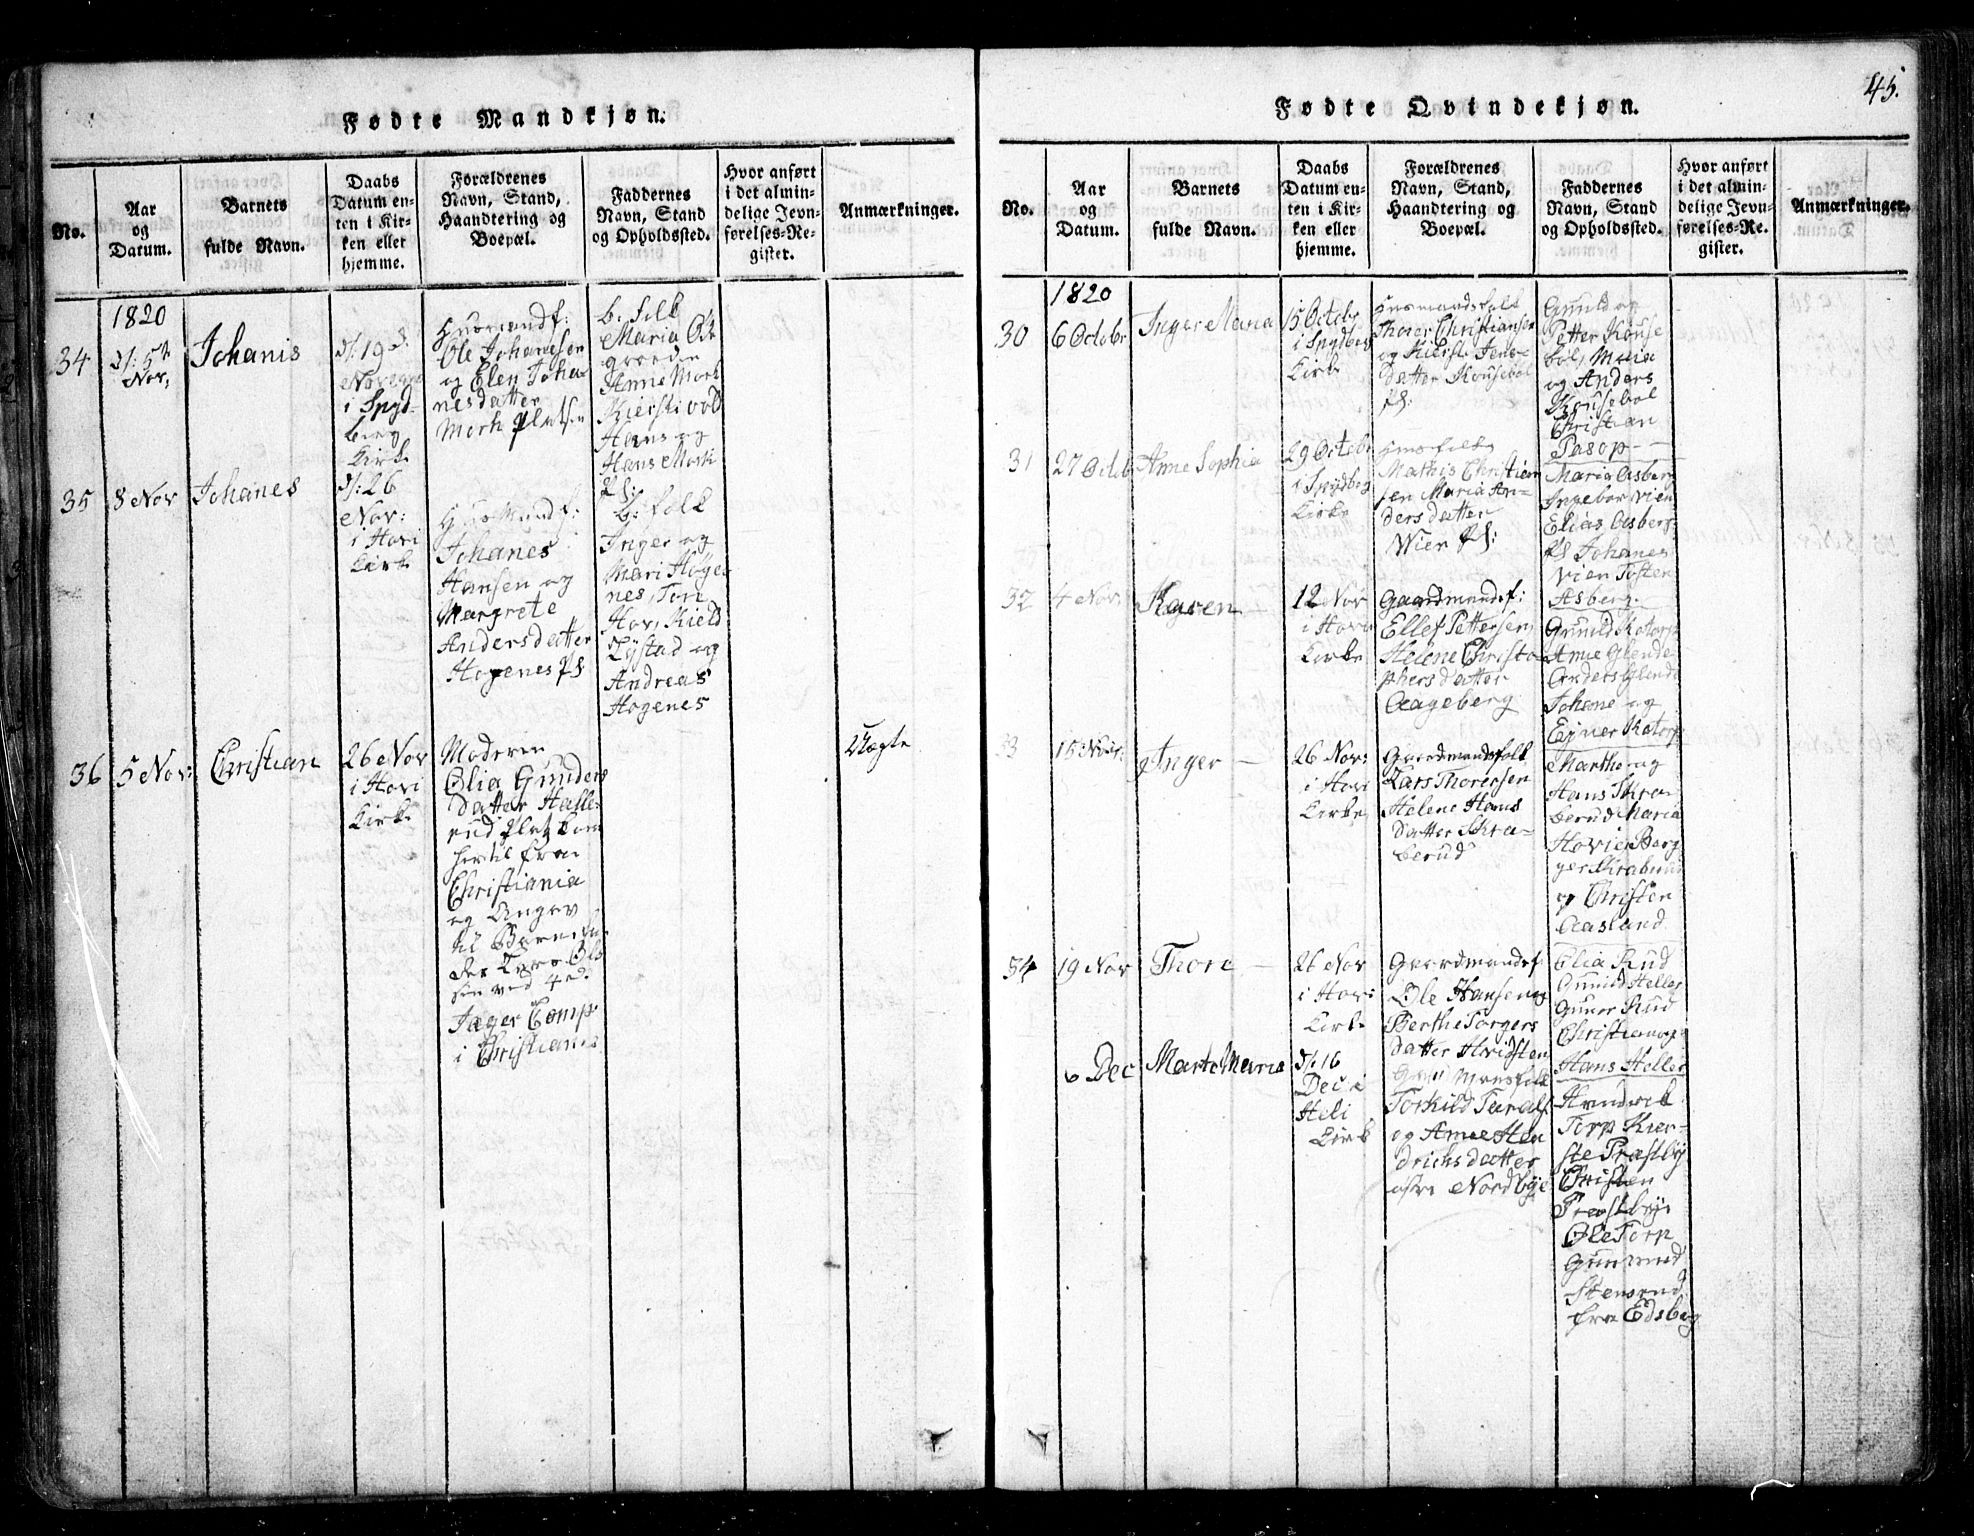 45.
Fødte Mandkjøn.
No.
Aar
og
Datum.
Barnets
fulde Navn.
Daabs
Datum en-
ten i Kir-
ken eller
hjemme.
Forældrenes
Navn, Stand,
Haandtering og
Boepæl.
Faddernes
Navn, Stand
og Opholdssted.
Hvor anført
i det almin-
delige Jevn-
førelses-Re-
gister.
Anmærkninger.
1820
34
d/: 5t
Nov:
Johanis
d/: 19
Nov
i Spyd-
berg
Kirke
Huusmandf:
Ole Johanesen
og Elen Joha-
nesdatter
Mork Platsen
b. folk
Maria
Anne Mork
Kiersti
Hans og
Hans Mork
35
8 Nov
Johanes
d/: 26
Nov:
i Hovi
Kirke
Huusmandf:
Johanes
Hansen og
Margrete
Andersdatter
Hogenes
b: folk
Inger og
Mari Höge-
nes, Tori
Hov, Kield
Lystad og
Andreas
Hogenes
36
5 Nov:
Christian
26 Nov
i Hovi
Kirke
Moderen
Olia Gunders
Datter Hasle-
rud Plads kom
hertil fra
Christiania
og Angav
til Barnefa-
der Lars Ols
sen ved 4de
Jæger Comp
i Christiania
Uægte
Fødte Qvindekjøn.
No.
Aar
og
Datum.
Barnets
fulde Navn.
Daabs
Datum en-
ten i Kir-
ken eller
hjemme.
Forældrenes
Navn, Stand,
Haandtering og
Boepæl.
Faddernes
Navn, Stand
og Opholdssted.
Hvor anført
i det almin-
delige Jevn-
førelses-Re-
gister.
Anmærkninger.
1820
30
6 Octobr
Inger Maria
15 Octobr
i Spydberg
Kirke
Huusmandsfolk
Thorer Christiansen
og Kiersti Jens-
datter Kousebøl
Gunild og
Petter Kouse
bøl, Maria
og Anders
Kousebøl
Christian
Pasop
31
27 Octob
Anne Sophia
29 Octobr
i Spydberg
Kirke
Huusfolk
Mathis Christian
sen Maria An-
dersdatter
Wien
Maria Asberg
Ingebor Vien
Elias Asberg
Johanes
Vien Tosten
Asberg
32
4 Nov:
Karen
12 Nov
i Hovi
Kirke
Gaardmandsf:
Ellef Pettersen
Helene Christo-
phersdatter
Aageberg
Gunild Katorp
Anne Glende
Anders Glende
Johane og
Ejner Katorp
33
15 Nov:
Inger
26 Nov:
i Hovi
Kirke
Gaardmandsfolk
Lars Thoressen
Helene Hans
datter Skra-
berud
Marthe og
Hans Skra-
berud Maria
Hovien Børg
ger Skraberud
og Christen
Aasland
34
19 Nov
Thore
26 Nov
i Hovi
Kirke
Gaardmandsf
Ole Hansen og
Berthe Torgers
datter Hvidsten
Elia Rud
Gunild Heller
Guner Rud
Christian og
Hans Heller
6 Dec
Marte Maria
d/: 16
Dec i
Heli
Kirke
Torkild Taralf
og Anne Hen
dricksdatter
østre Nordbye
Torp Kier-
ste Præstby
Christen
Præstbye
Ole Torp
Gunerud
Stensrud
fra Edsberg